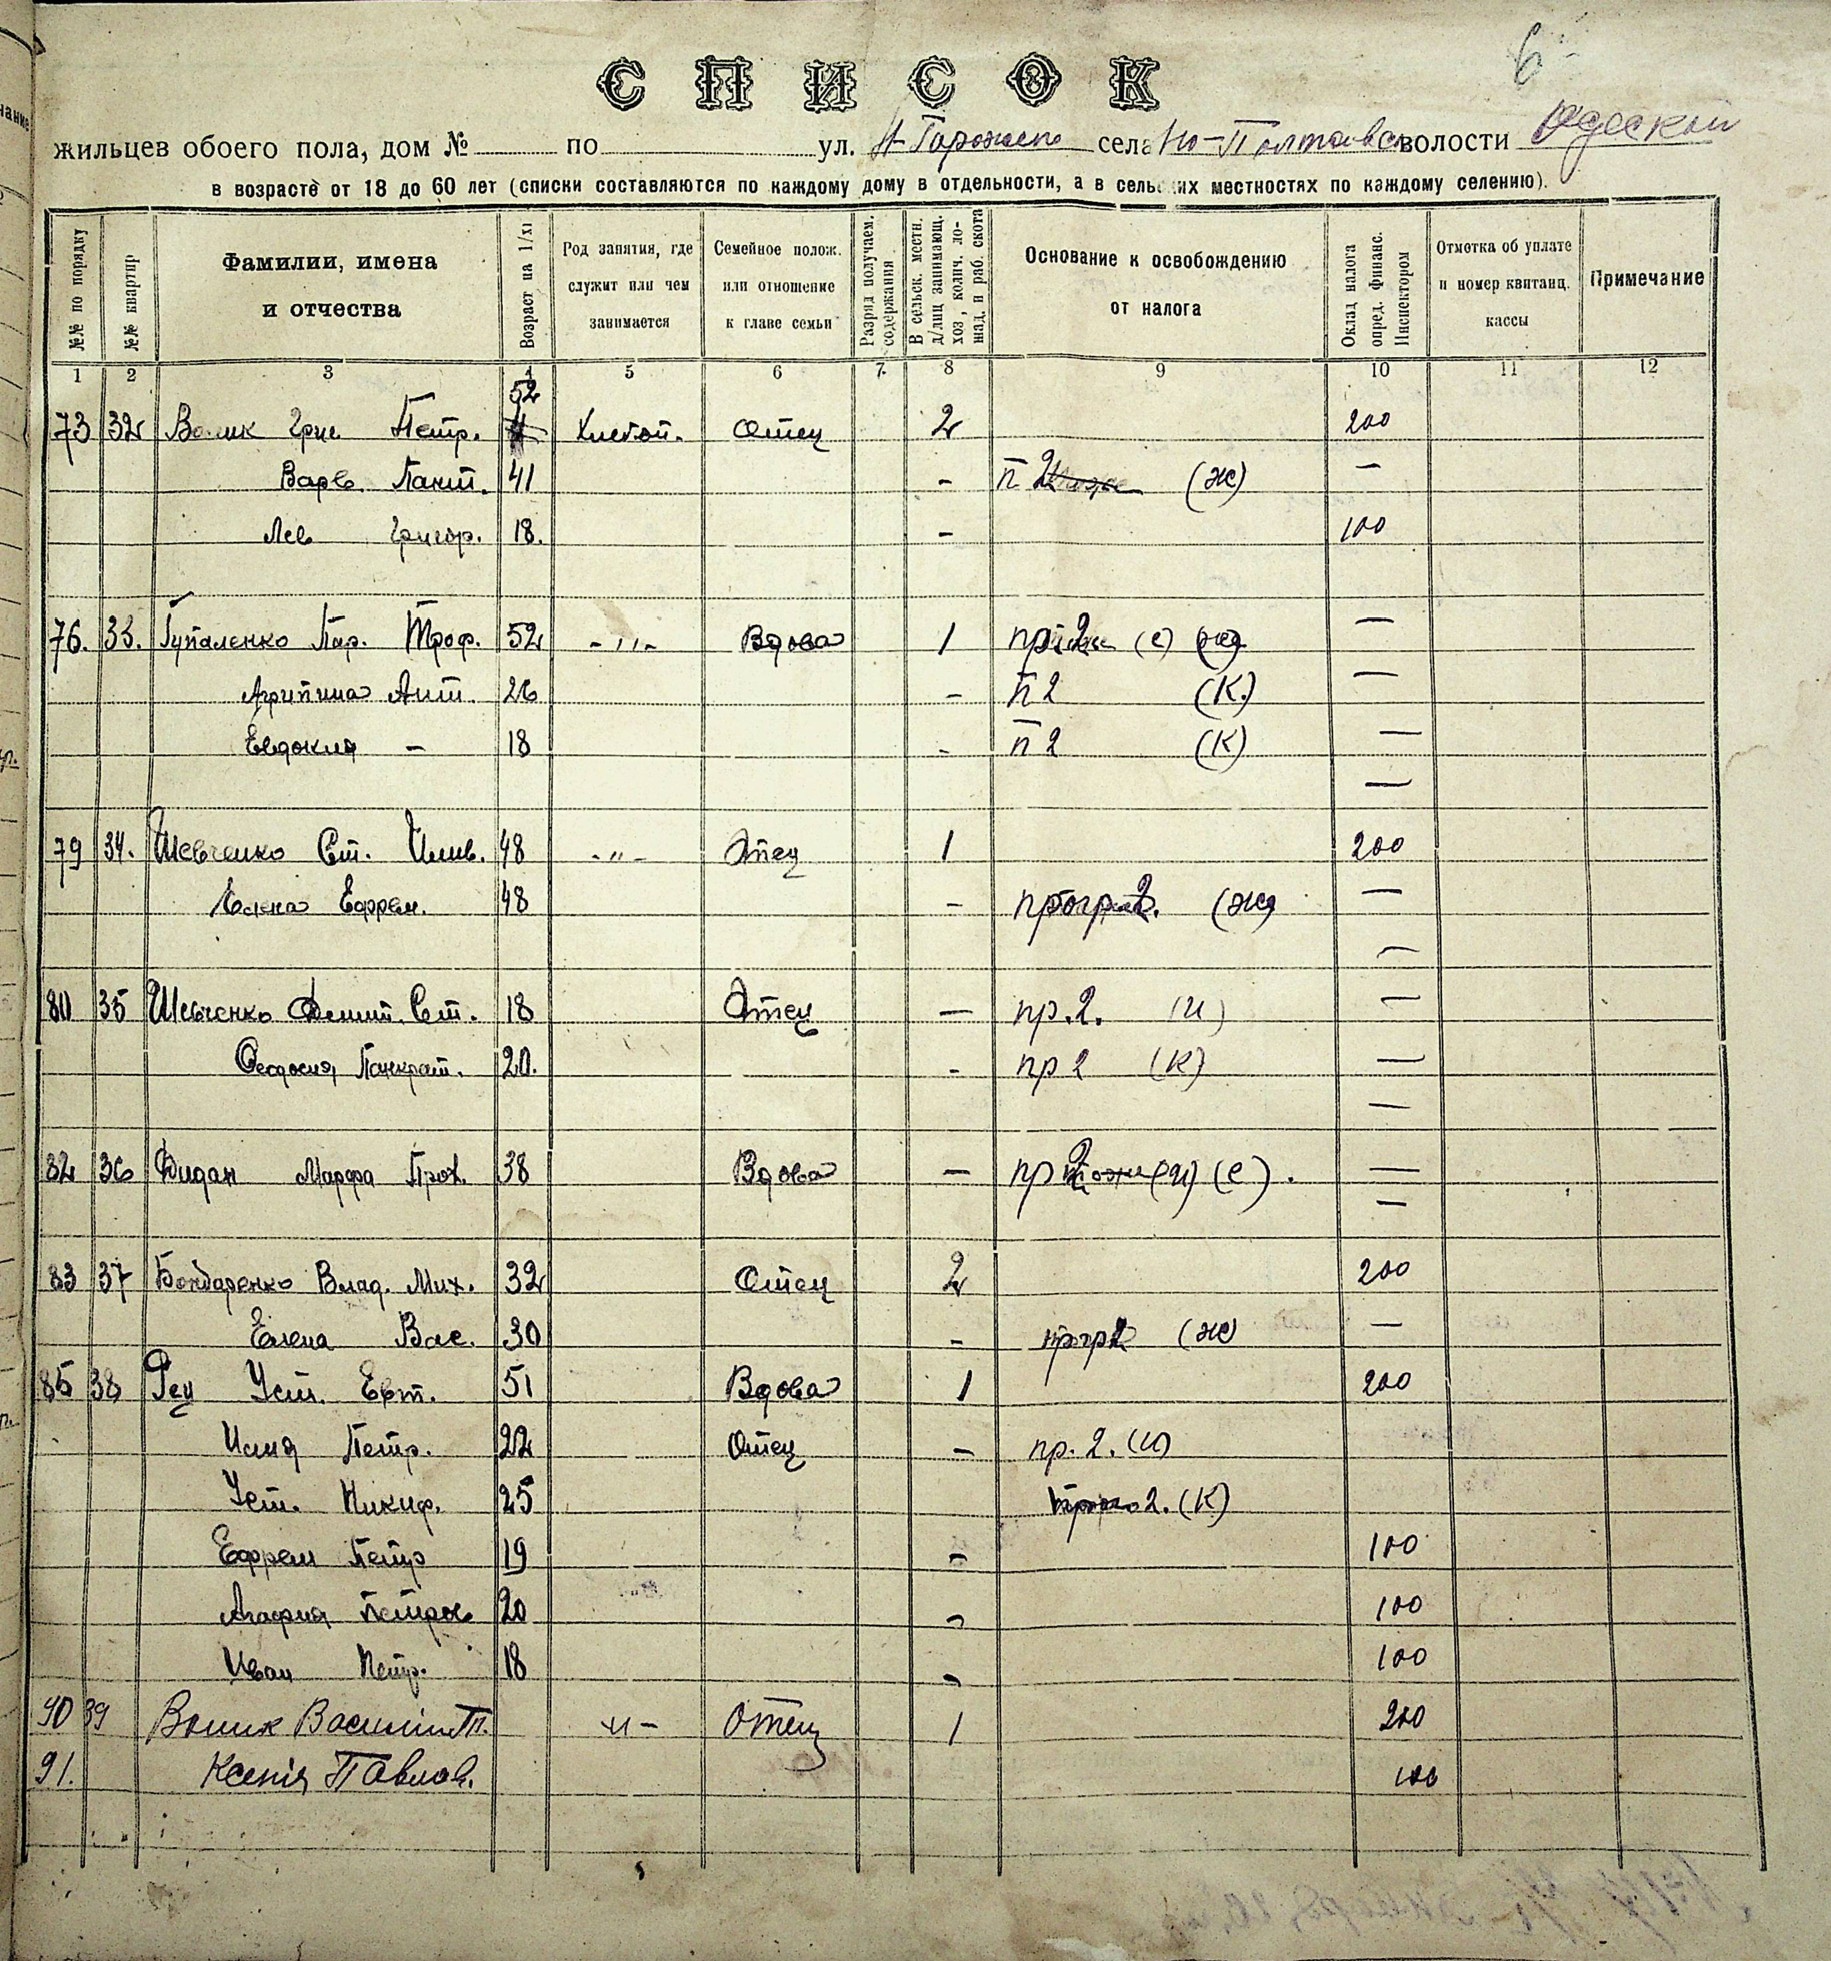 6
СПИСОК
жильцев обоего пола, дом № по ул. села Но-Полтавск волости Одеской
в возрасте от 18 до 60 лет (списки составляются по каждому дому в отдельности, а в сельских местностях по каждому селению).
№№ по порядку | №№ квартир | Фамилии, имена и отчества | Возраст на 1/XI | Род занятия, где служит или чем занимается | Семейное полож. или отношение к главе семьи | Разряд получаем. содержания | В сельск. местн. д/лиц занимающ. хоз, колич. лошад. и раб. скота | Основание к освобождению от налога | Оклад налога опред. финанс. Инспектором | Отметка об уплате и номер квитанц. кассы | Примечание
1 2 3 4 5 6 7 8 9 10 11 12
52
73 32 Волик Григ Петр. Хлебоп. Отец 2 200
Варв. Пант. 41 - п 2 (ж) —
Лев Григор. 18. - 100
76. 33. Гупаленко Пар. Троф. 52 -"- Вдова 1 пр 2 (с) —
Агрипина Ант. 26 - п 2 (К.) —
Евдокия - 18 - п 2 (К) —
—
79 34. Шевченко Ст. 48 -"- Отец 1 200
Елена Ефрем. 48 - (ж) —
—
80 35 Шевченко Демит. Ст. 18 Отец — пр. 2. (и) —
Феодосия Панкрат. 20. - пр 2 (К) —
—
82 36 Дидан Марфа Прок. 38 Вдова — пр 2 (и) (с). —
—
83 37 Бондаренко Влад. Мих. 32 Отец 2 200
Елена Вас. 30 - (ж) —
85 38 Рец Уст. Евт. 51 Вдова 1 200
Илия Петр. 22 Отец — пр. 2. (и)
Уст. Никиф. 25 2. (К)
Ефрем Петр 19 - 100
Агафия Петров 20 - 100
Иван Петр. 18 - 100
90 39 Волик Василий П. -"- Отец 1 200
91. Ксения Павлов. 100